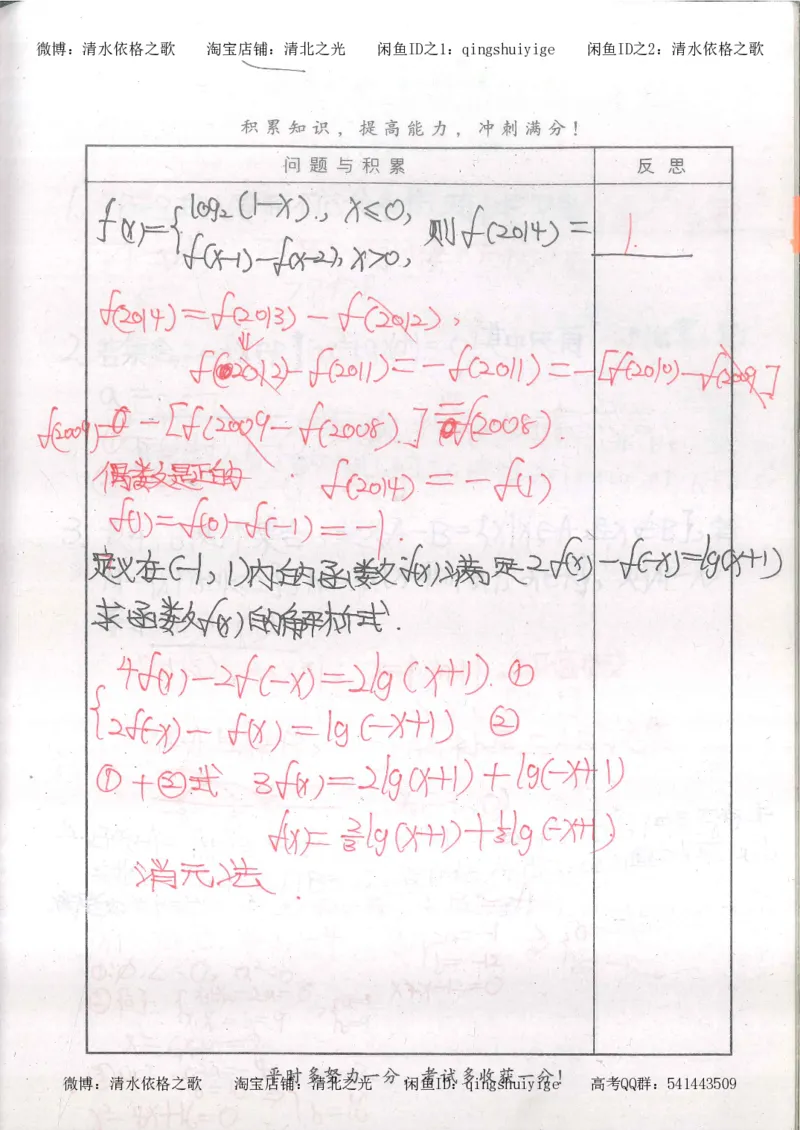 微博：清水依格之歌 淘宝店铺：清北之光 闲鱼ID之1：qingshuiyige 闲鱼ID之2：清水依格之歌
积累知识，提高能力，冲刺满分！
问题与积累 反思
f(x)={log₂(1-x)., x≤0,
f(x-1)-f(x-2), x>0, 则f(2014)= 1.
f(2014)=f(2013)-f(2012),
⇓
f(2012)-f(2011)=-f(2011)=-[f(2010)-f(2009)]
f(2009)= -[f(2009-f(2008).]=f(2008).
偶数是正的 f(2014)=-f(1)
f(1)=f(0)-f(-1)=-1.
定义在(-1,1)内的函数f(x)满足2f(x)-f(-x)=lg(x+1)
求函数f(x)的解析式.
{4f(x)-2f(-x)=2lg(x+1).①
2f(-x)-f(x)=lg(-x+1) ②
①+②式 3f(x)=2lg(x+1)+lg(-x+1)
f(x)=2/3lg(x+1)+1/3lg(-x+1)
消元法.
平时多努力一分，考试多收获一分！
微博：清水依格之歌 淘宝店铺：清北之光 闲鱼ID：qingshuiyige 高考QQ群：541443509